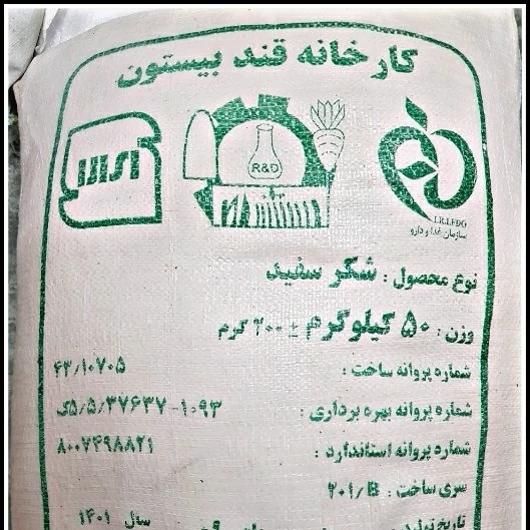 کارخانه قند بیستون
R&D
I.R.I.FDO
سازمان غذا و دارو
نوع محصول : شکر سفید
وزن : ۵۰ کیلوگرم ± ۲۰۰ گرم
شماره پروانه ساخت : ۴۳/۱۰۷۰۵
شماره پروانه بهره برداری : ۱۰۹۳-۵/۵/۳۷۶۳۷ک
شماره پروانه استاندارد : ۸۰۰۷۴۹۸۸۲۱
سری ساخت : ۲۰۱/B
تاریخ تولید سال ۱۴۰۱